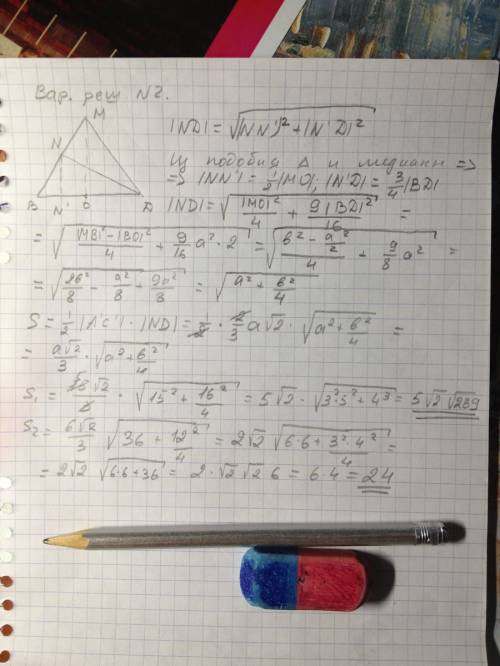 Вар. реш N2.
M
N
B N' O D
|ND| = √(|NN'|² + |N'D|²)
Из подобия Δ и медианы =>
=> |NN'| = 1/2 |MO|; |N'D| = 3/4 |BD|
|ND| = √(|MO|²/4 + 9|BD|²/16) =
= √((|MB|² - |BO|²)/4 + 9/16 a² · 2) = √((b² - a²/2)/4 + 9/8 a²) =
= √(2b²/8 - a²/8 + 9a²/8) = √(a² + b²/4)
S = 1/2 |A'C'| · |ND| = 1/2 · 2/3 a√2 · √(a² + b²/4) =
= a√2/3 · √(a² + b²/4)
S₁ = √2 · √(15² + 16²/4) = 5√2 · √(3²·5² + 4³) = 5√2 √289
S₂ = 6√2/3 √(36 + 12²/4) = 2√2 √(6·6 + 3²·4²/4) =
= 2√2 √(6·6 + 36) = 2·√2 √2 6 = 6·4 = 24